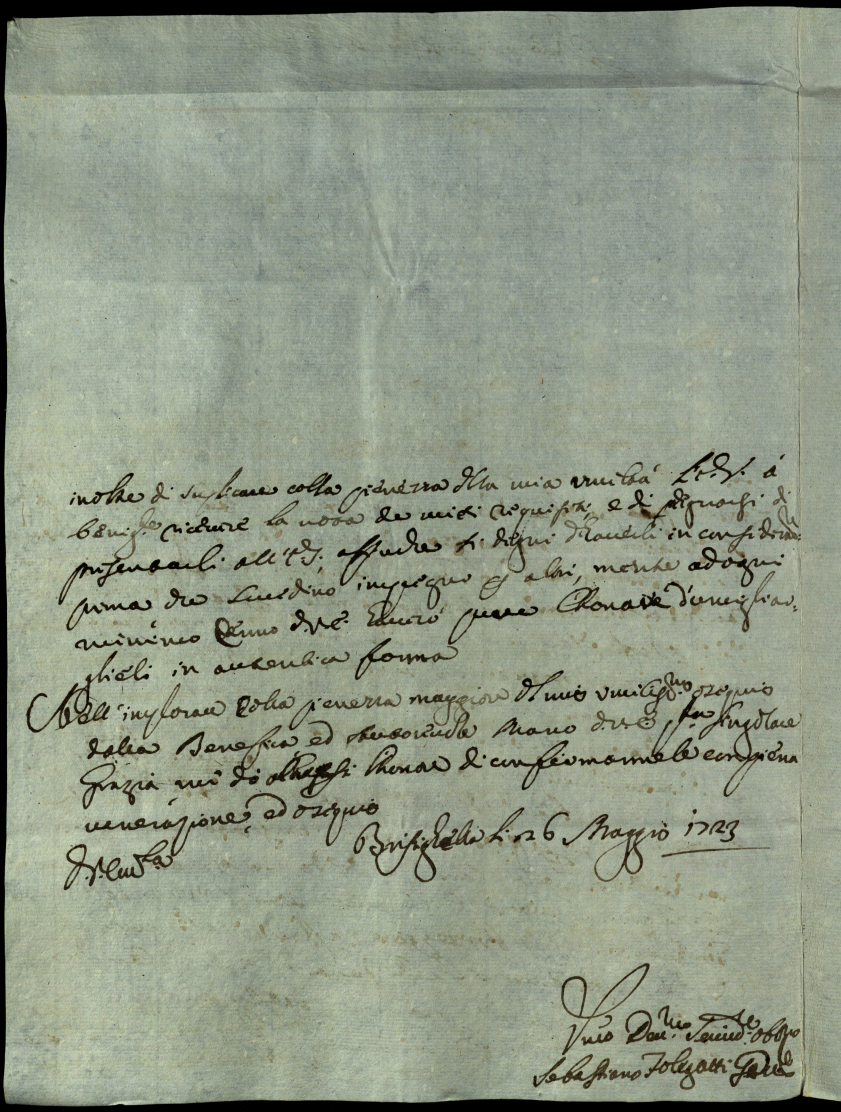 inoltre di suplicare colla pienezza della mia umiltà
benig.te ricevere la nota de miei requisiti, e di degnarsi di
presentarli all' affinche si degni d'haverli in consideraz.ne
prima che prendino impegno p altri, mentre ad ogni
minimo cenno d. V. E. havrò pure l'honore d'umigliar=
glieli in autentica forma
Nell' implorare colla pienezza maggiore del mio umiliss.mo ossequio
dalla Benefica, ed Mano di V. E. singolare
Grazia mi dò l'honor di confirmarmele con piena
venerazione, ed ossequio
D. V. Em.za
Brisighella li 26 Maggio 1723
Umo Dev.mo Servid.e Obblmo
Sebastiano Folegatti